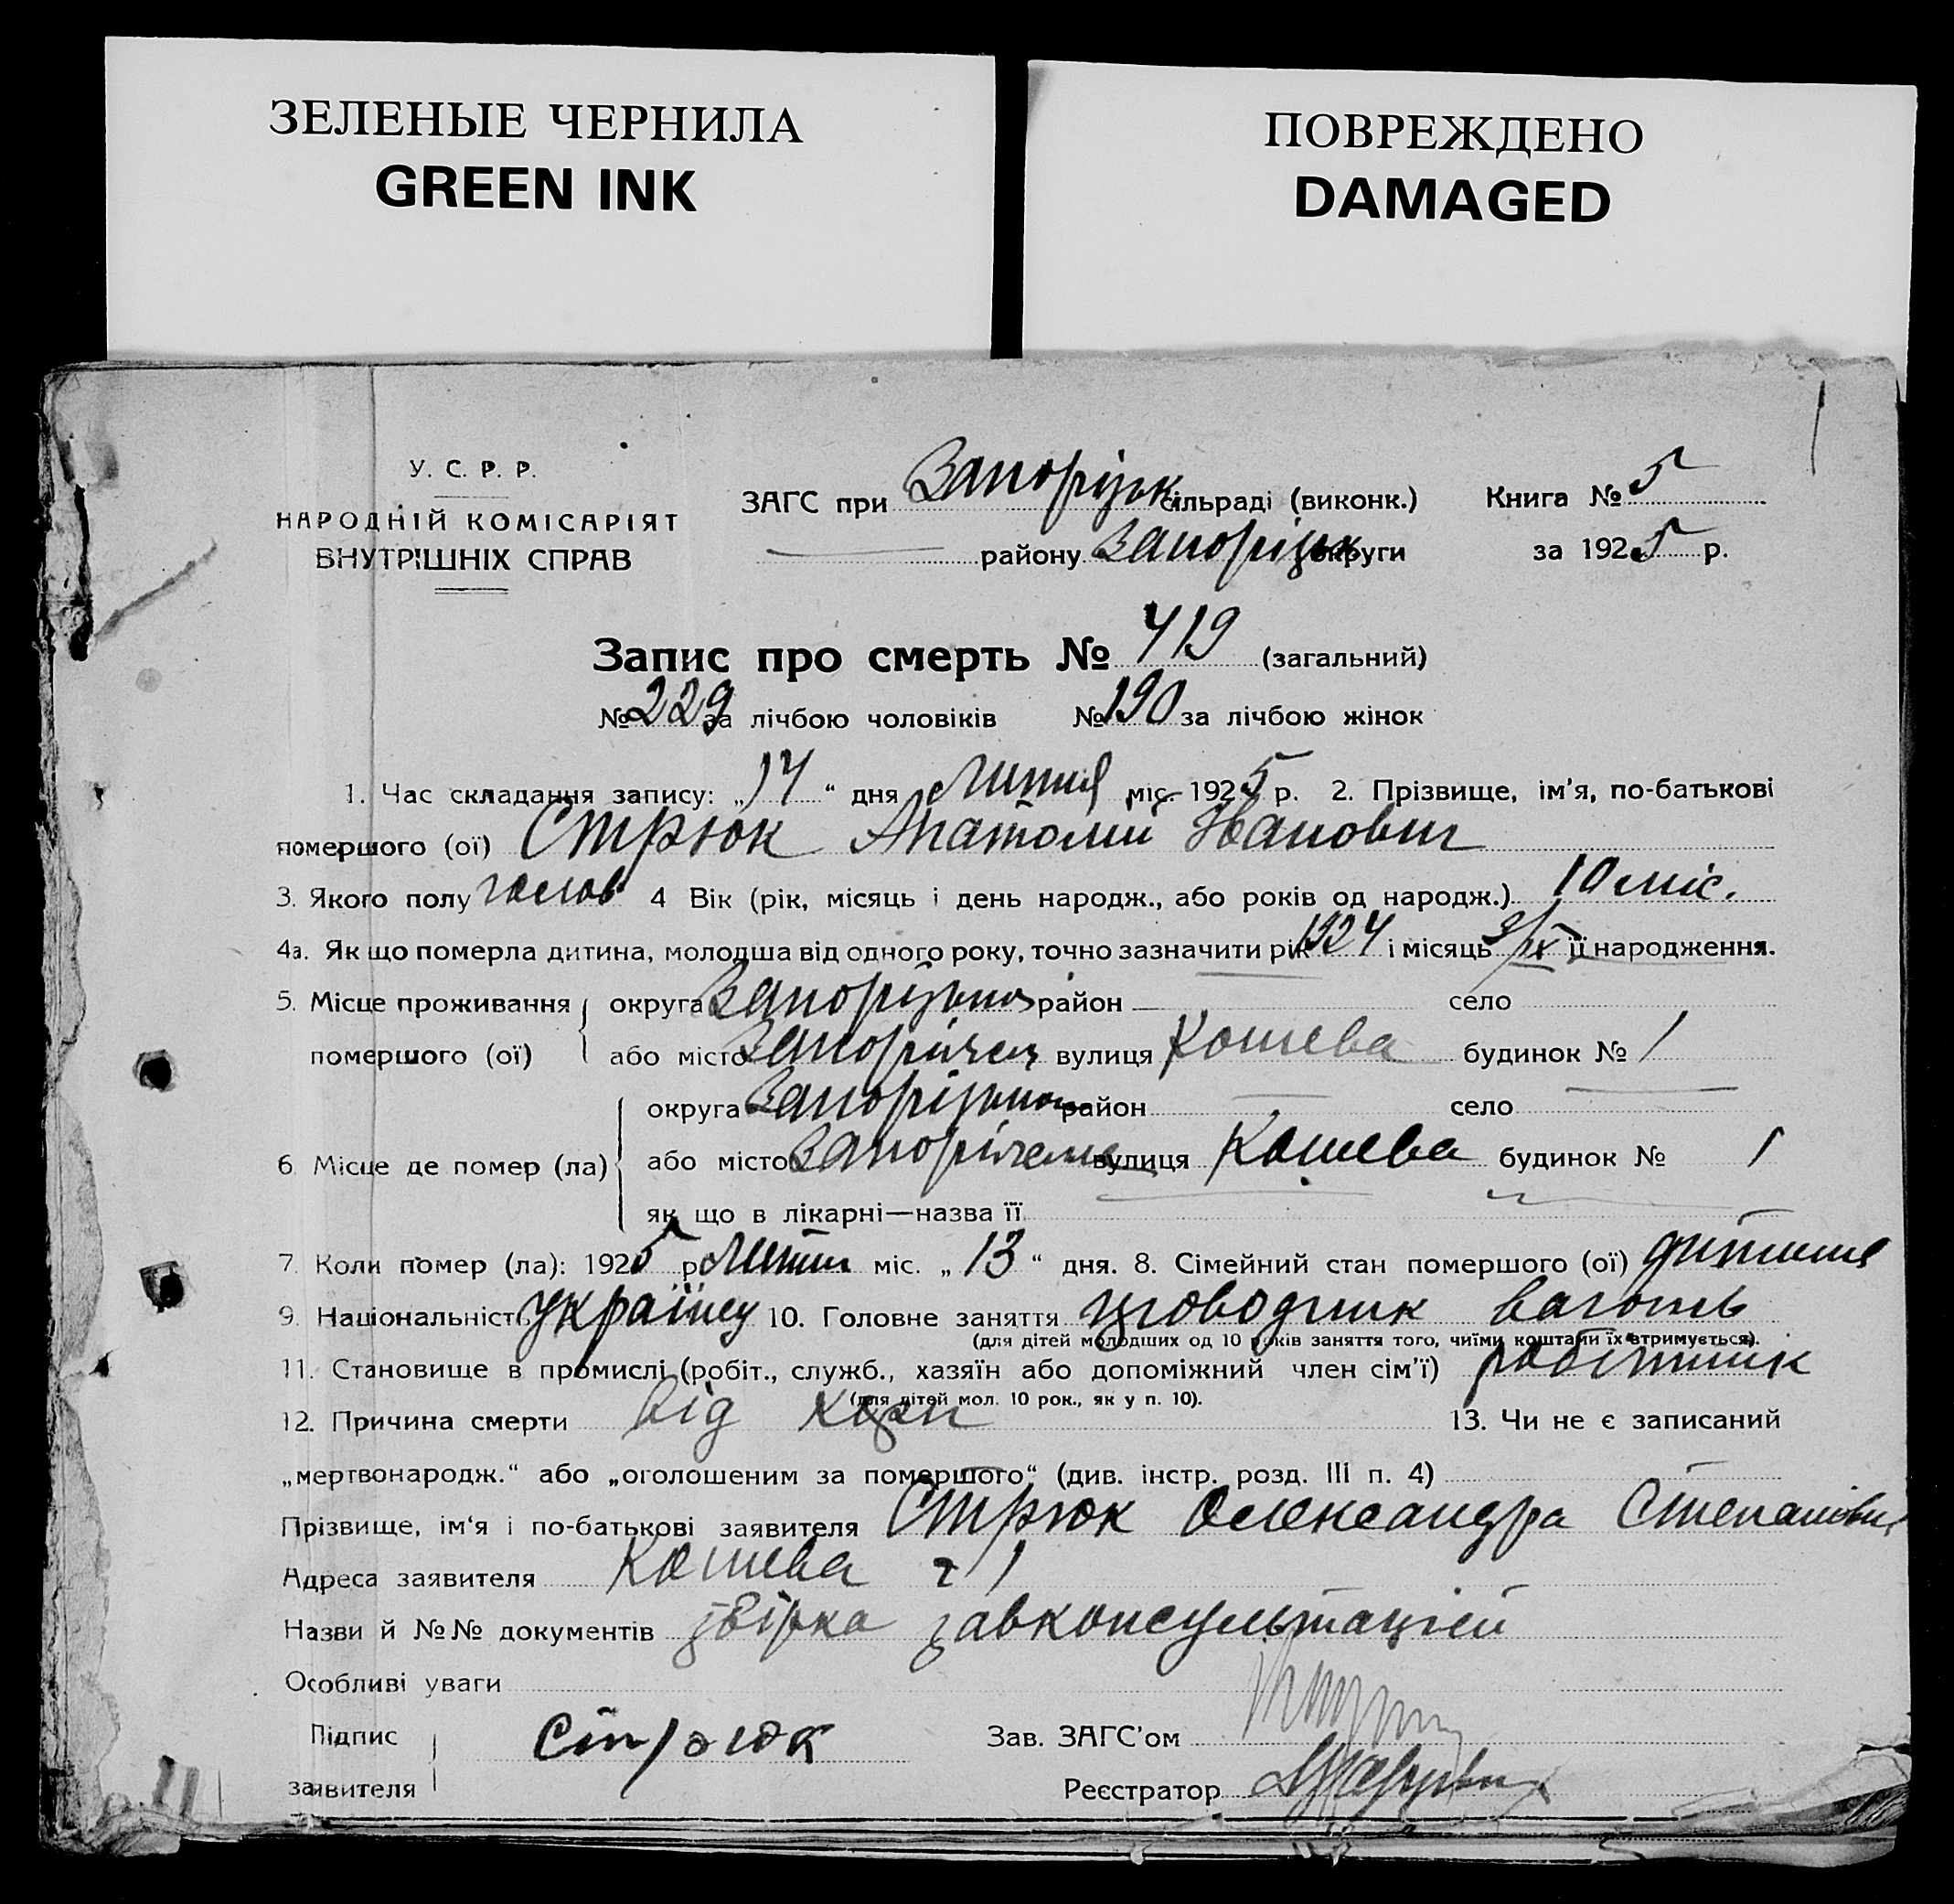 ЗЕЛЕНЫЕ ЧЕРНИЛА
GREEN INK
ПОВРЕЖДЕНО
DAMAGED
У. С. Р. Р.
НАРОДНІЙ КОМІСАРІЯТ
ВНУТРІШНІХ СПРАВ
ЗАГС при Запорізьк сільраді (виконк.) Книга № 5
району Запорізьк округи за 1925 р.
Запис про смерть № 419 (загальний)
№ 229 за лічбою чоловіків № 190 за лічбою жінок
1. Час складання запису: „14“ дня Липня міс. 1925 р. 2. Прізвище, ім'я, по-батькові
помершого (ої) Стрюк Анатолий Іванович
3. Якого полу чолов 4 Вік (рік, місяць і день народж., або років од народж.) 10 міс.
4а. Як що померла дитина, молодша від одного року, точно зазначити рік 1924 і місяць 3/ІХ її народження.
5. Місце проживання округа Запорізька район село
помершого (ої) або місто вулиця Кошева будинок № 1
округа Запорізька район село
6. Місце де помер (ла) або місто вулиця Кошева будинок № 1
як що в лікарні—назва її
7. Коли помер (ла): 1925 р. Липня міс. „13“ дня. 8. Сімейний стан помершого (ої) дитина
9. Національність українец 10. Головне заняття проводник вагонів
(для дітей молодших од 10 років заняття того, чиїми коштами їх втримується).
11. Становище в промислі (робіт., служб., хазяїн або допоміжний член сім'ї) робітник
(для дітей мол. 10 рок., як у п. 10).
12. Причина смерти від кори 13. Чи не є записаний
„мертвонародж.“ або „оголошеним за помершого“ (див. інстр. розд. III п. 4)
Прізвище, ім'я і по-батькові заявителя Стрюк Олександра Степанівна
Адреса заявителя Кошева ч 1
Назви й №№ документів завконсультацієй
Особливі уваги
Підпис Стрюк Зав. ЗАГС'ом
заявителя Реєстратор